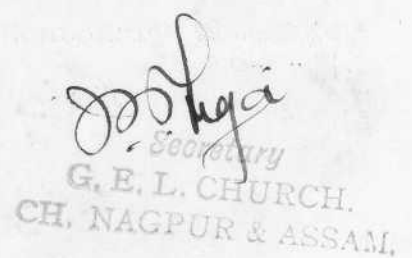 Secretary
G. E. L. CHURCH.
CH. NAGPUR & ASSAM.